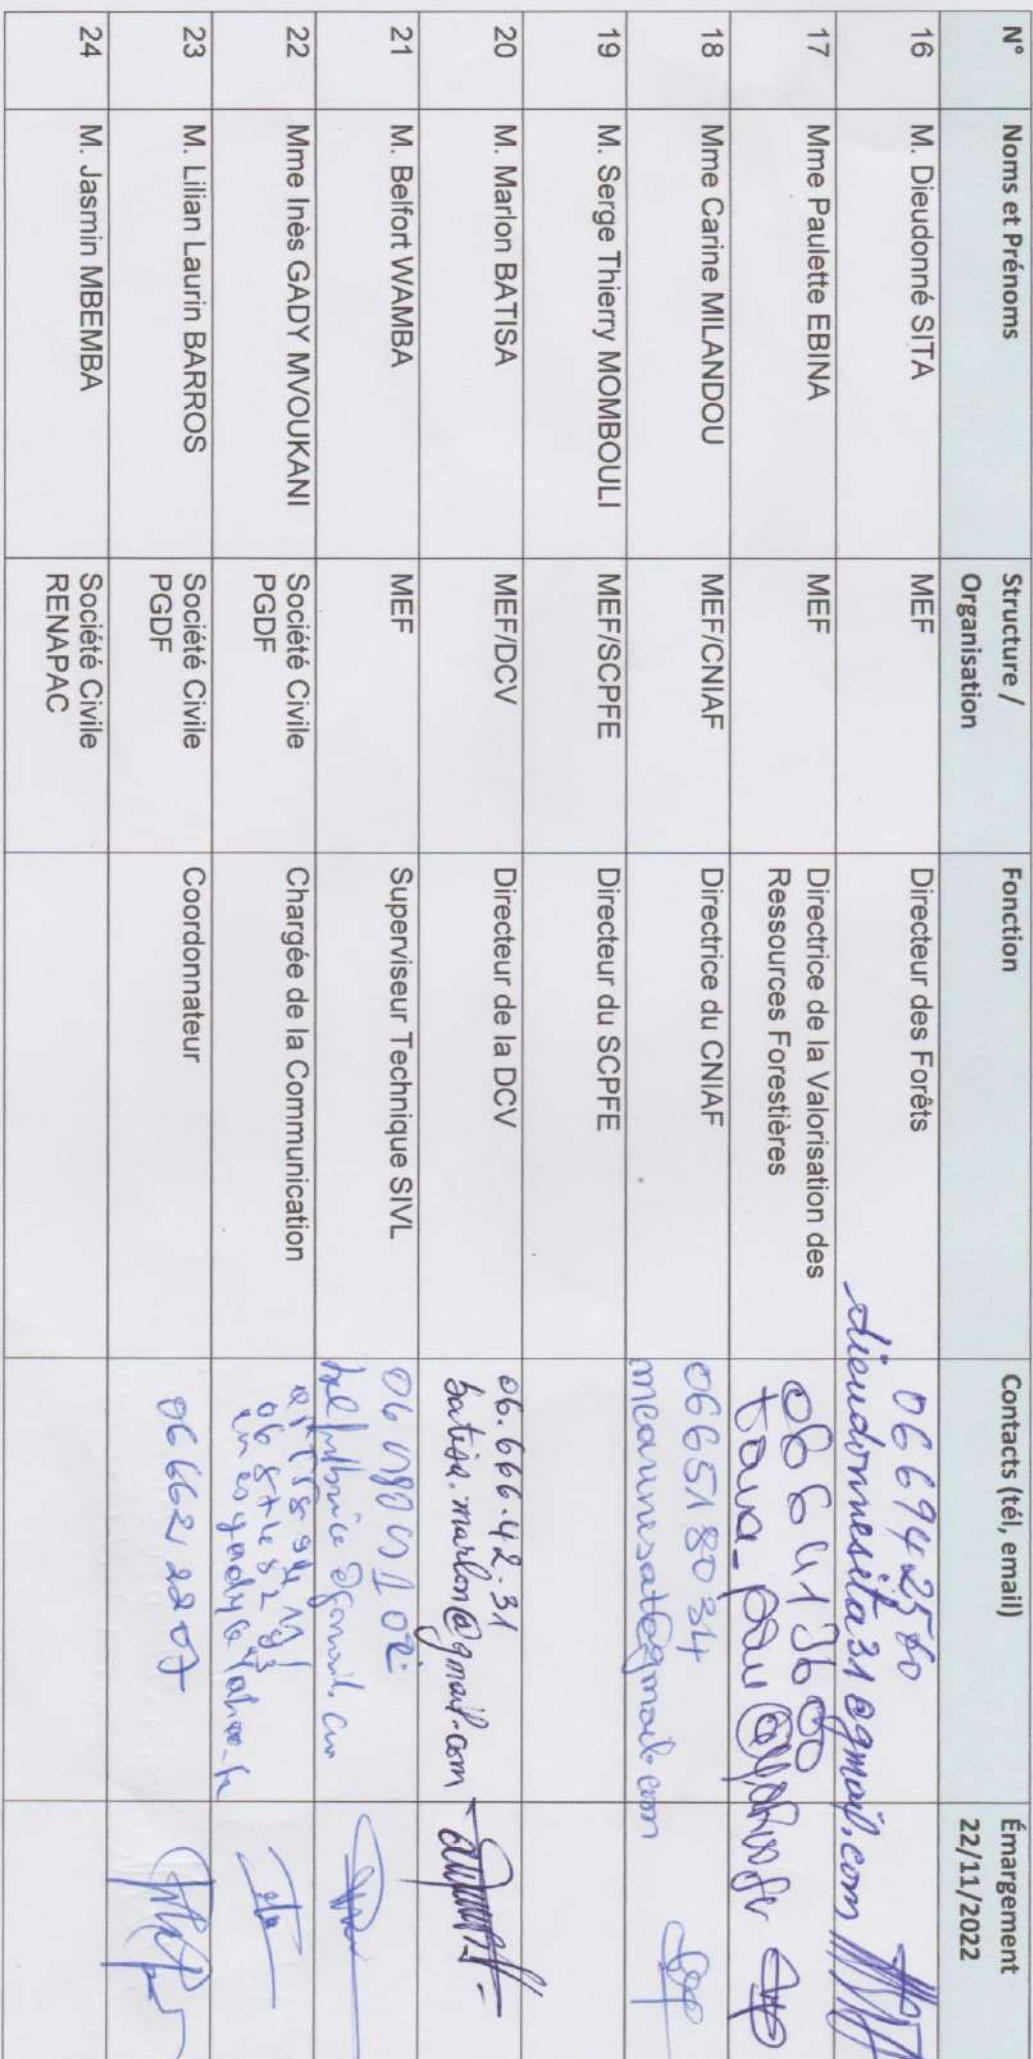 N° Noms et Prénoms Structure / Organisation Fonction Contacts (tél, email) Émargement 22/11/2022
16 M. Dieudonné SITA MEF Directeur des Forêts 06 694 25 60
dieudonnesita31@gmail.com
17 Mme Paulette EBINA MEF Directrice de la Valorisation des
Ressources Forestières
18 Mme Carine MILANDOU MEF/CNIAF Directrice du CNIAF 06651 80 34
19 M. Serge Thierry MOMBOULI MEF/SCPFE Directeur du SCPFE
20 M. Marlon BATISA MEF/DCV Directeur de la DCV 06.666.42.31
batisa.marlon@gmail.com
21 M. Belfort WAMBA MEF Superviseur Technique SIVL
22 Mme Inès GADY MVOUKANI Société Civile
PGDF Chargée de la Communication
23 M. Lilian Laurin BARROS Société Civile
PGDF Coordonnateur 06 662 22 07
24 M. Jasmin MBEMBA Société Civile
RENAPAC